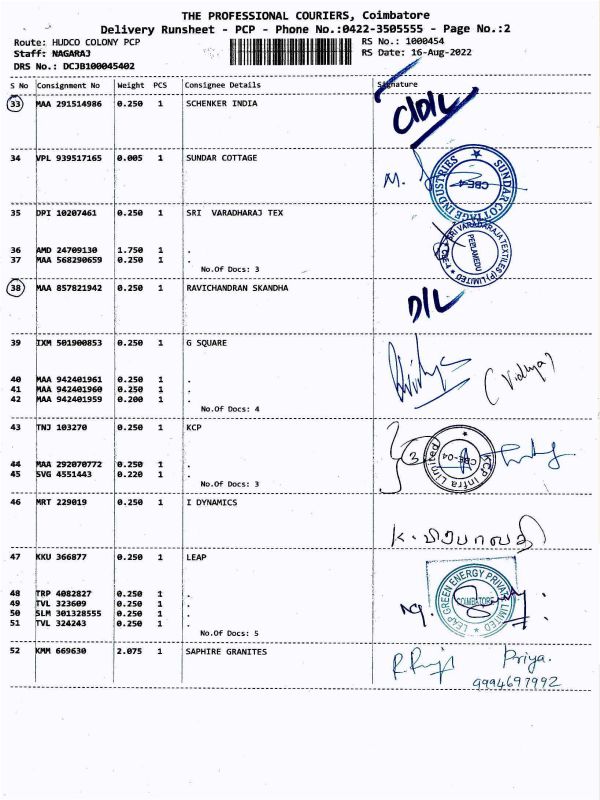 THE PROFESSIONAL COURIERS, Coimbatore
Delivery Runsheet - PCP - Phone No.:0422-3505555 - Page No.:2
Route: HUDCO COLONY PCP RS No.: 1000454
Staff: NAGARAJ RS Date: 16-Aug-2022
DRS No.: DCJB100045402
S No Consignment No Weight PCS Consignee Details Signature
33 MAA 291514986 0.250 1 SCHENKER INDIA
34 VPL 939517165 0.005 1 SUNDAR COTTAGE
M.
SUNDAR COTTAGE INDUSTRIES ★ CBE-4
35 DPI 10207461 0.250 1 SRI VARADHARAJ TEX
SRI VARADARAJA TEXTILES (P) LIMITED ★ CBE-4 PEELAMEDU
36 AMD 24709130 1.750 1 .
37 MAA 568290659 0.250 1 .
No.Of Docs: 3
38 MAA 857821942 0.250 1 RAVICHANDRAN SKANDHA
D/L
39 IXM 501900853 0.250 1 G SQUARE
(Vidhya)
40 MAA 942401961 0.250 1 .
41 MAA 942401960 0.250 1 .
42 MAA 942401959 0.200 1 .
No.Of Docs: 4
43 TNJ 103270 0.250 1 KCP
3 KCP Infra Limited CBE-04
44 MAA 292070772 0.250 1 .
45 SVG 4551443 0.220 1 .
No.Of Docs: 3
46 MRT 229019 0.250 1 I DYNAMICS
47 KKU 366877 0.250 1 LEAP
LEAP GREEN ENERGY PRIVATE LIMITED ★ COIMBATORE
48 TRP 4082827 0.250 1 .
49 TVL 323609 0.250 1 .
50 SLM 301328555 0.250 1 .
51 TVL 324243 0.250 1 .
No.Of Docs: 5
52 KMM 669630 2.075 1 SAPHIRE GRANITES
Priya.
9994697992